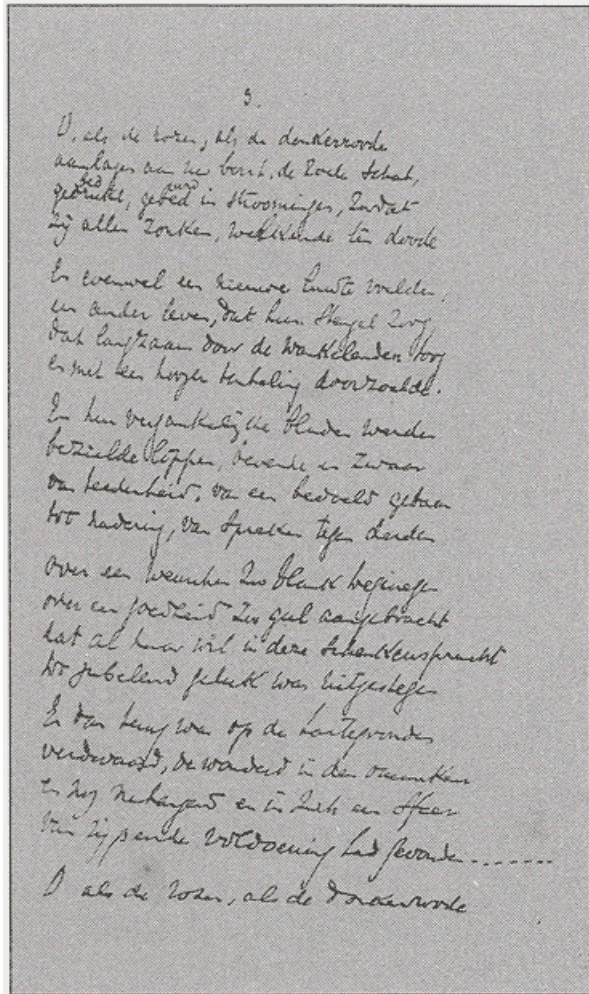 3.
O, als de rozen, als de donkerroode
aan haar borst, de zoete schat,
in stroomingen, zoodat
zij allen zonken, welkende ten doode
En evenwel een nieuwe voelden,
een ander leven, dat hun stengel zoog,
dat langzaam door de wankelenden toog
en met een hooger doorzoelde.
En hun vergankelijke bladen werden
bezielde lippen, bevende en zwaar
van teederheid, van een bedoeld gebaar
tot nadering, van spreken tegen derden
over een zoo blank
over een goedheid zoo gul aangebracht
dat al haar wil in deze schenkenspracht
tot jubelend geluk was uitgestegen
En dan terug was op de
verdwaasd, verwonderd in den ommekeer
en nog en in zulk een sfeer
van voldoening had gevonden.......
O als de rozen, als de donkerroode